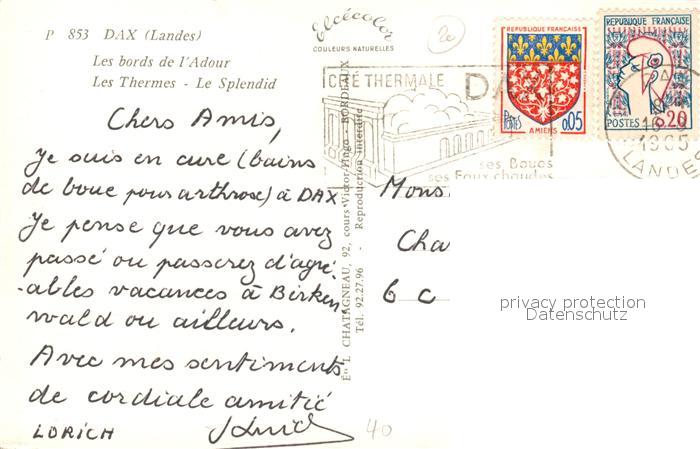 P 853 DAX (Landes)
Les bords de l'Adour
Les Thermes - Le Splendid
Elcécolor
COULEURS NATURELLES
2e
Chers Amis,
Je suis en cure (bains
de boue pour arthrose) à DAX
Je pense que vous avez
passé ou passerez d'agré-
-ables vacances à Birken
wald ou ailleurs.
Avec mes sentiments
de cordiale amitié
LORICH
40
Éd. L. CHATAGNEAU, 92, cours Victor-Hugo - BORDEAUX
Tél. 92.27.96 - Reproduction interdite
CITÉ THERMALE
DAX
ses Boues
ses Eaux chaudes
REPUBLIQUE FRANÇAISE
POSTES
0,05
AMIENS
REPUBLIQUE FRANÇAISE
POSTES
0,20
1965
LANDE
Mons
Cha
6 C
privacy protection
Datenschutz